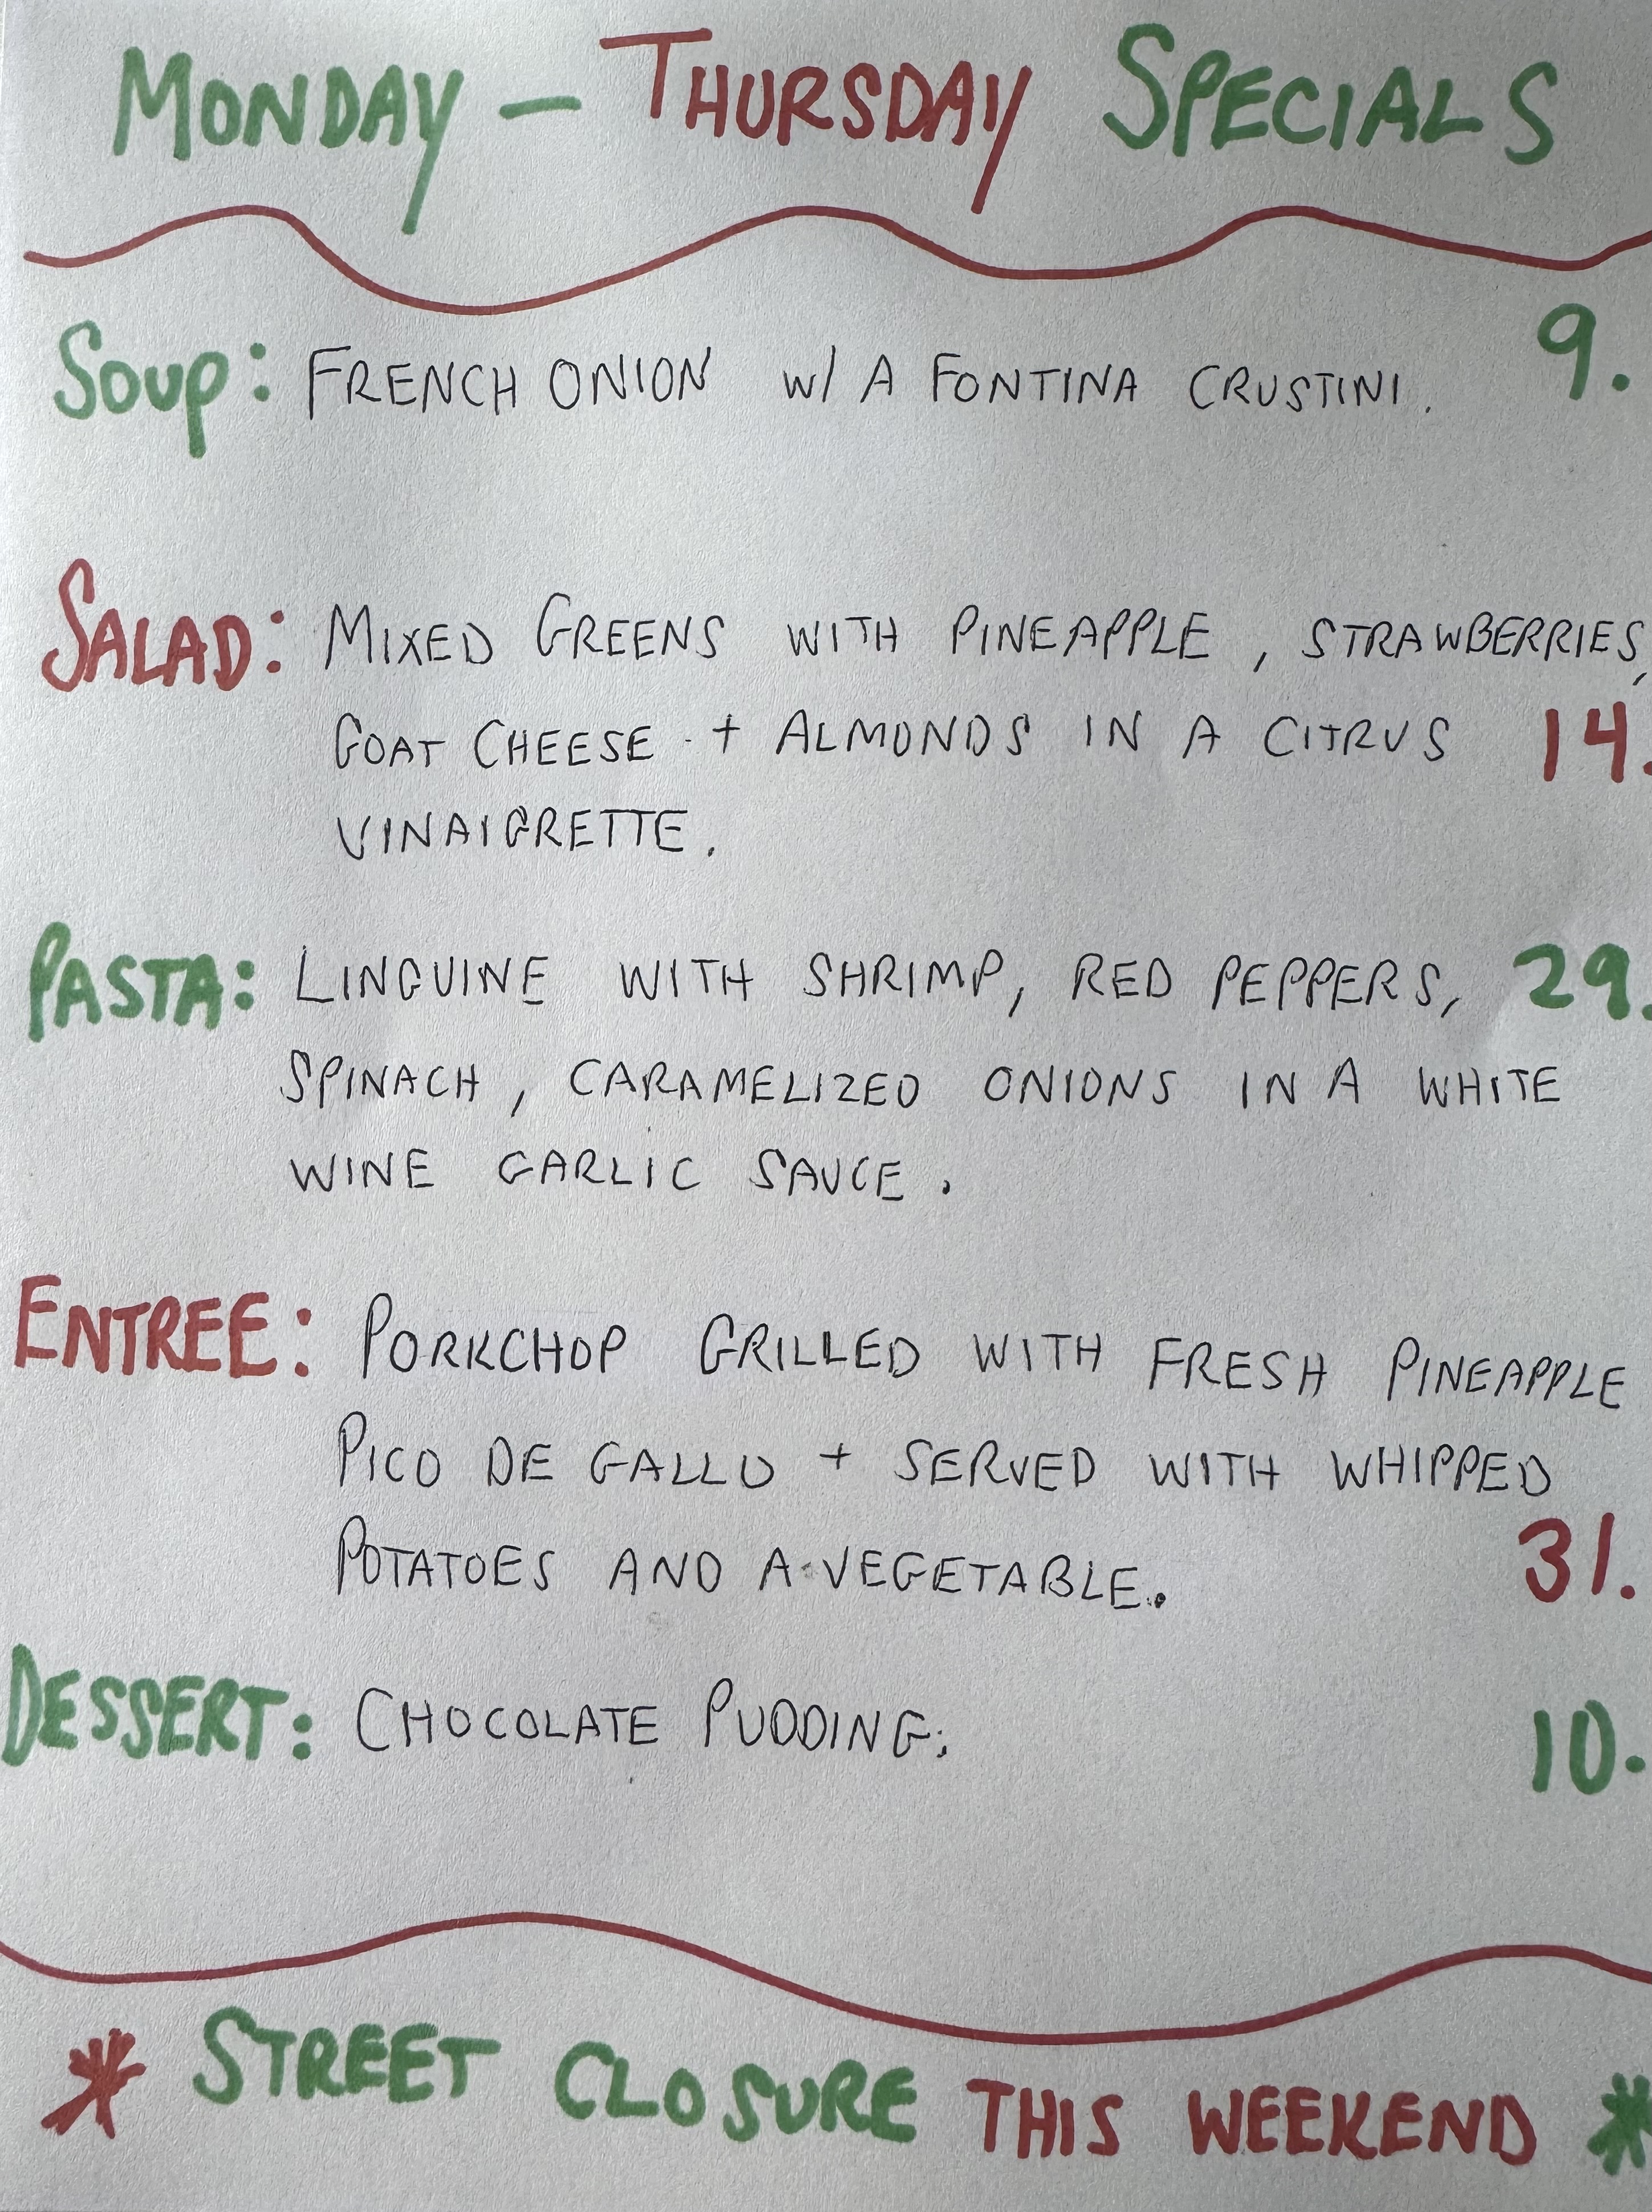 MONDAY – THURSDAY SPECIALS
SOUP: FRENCH ONION W/ A FONTINA CRUSTINI. 9.
SALAD: MIXED GREENS WITH PINEAPPLE, STRAWBERRIES,
GOAT CHEESE + ALMONDS IN A CITRUS 14.
VINAIGRETTE.
PASTA: LINGUINE WITH SHRIMP, RED PEPPERS, 29.
SPINACH, CARAMELIZED ONIONS IN A WHITE
WINE GARLIC SAUCE.
ENTREE: PORKCHOP GRILLED WITH FRESH PINEAPPLE
PICO DE GALLO + SERVED WITH WHIPPED
POTATOES AND A VEGETABLE. 31.
DESSERT: CHOCOLATE PUDDING. 10.
* STREET CLOSURE THIS WEEKEND *